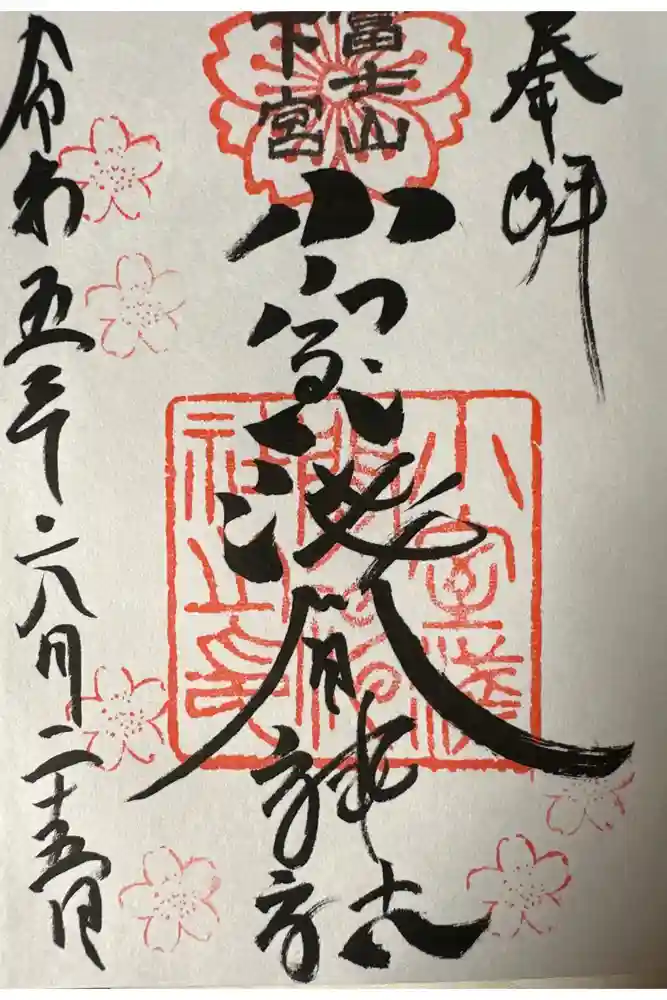 奉拝
富士山
下宮
小室浅間神社
小室淺
間神
社之印
令和五年六月二十五日